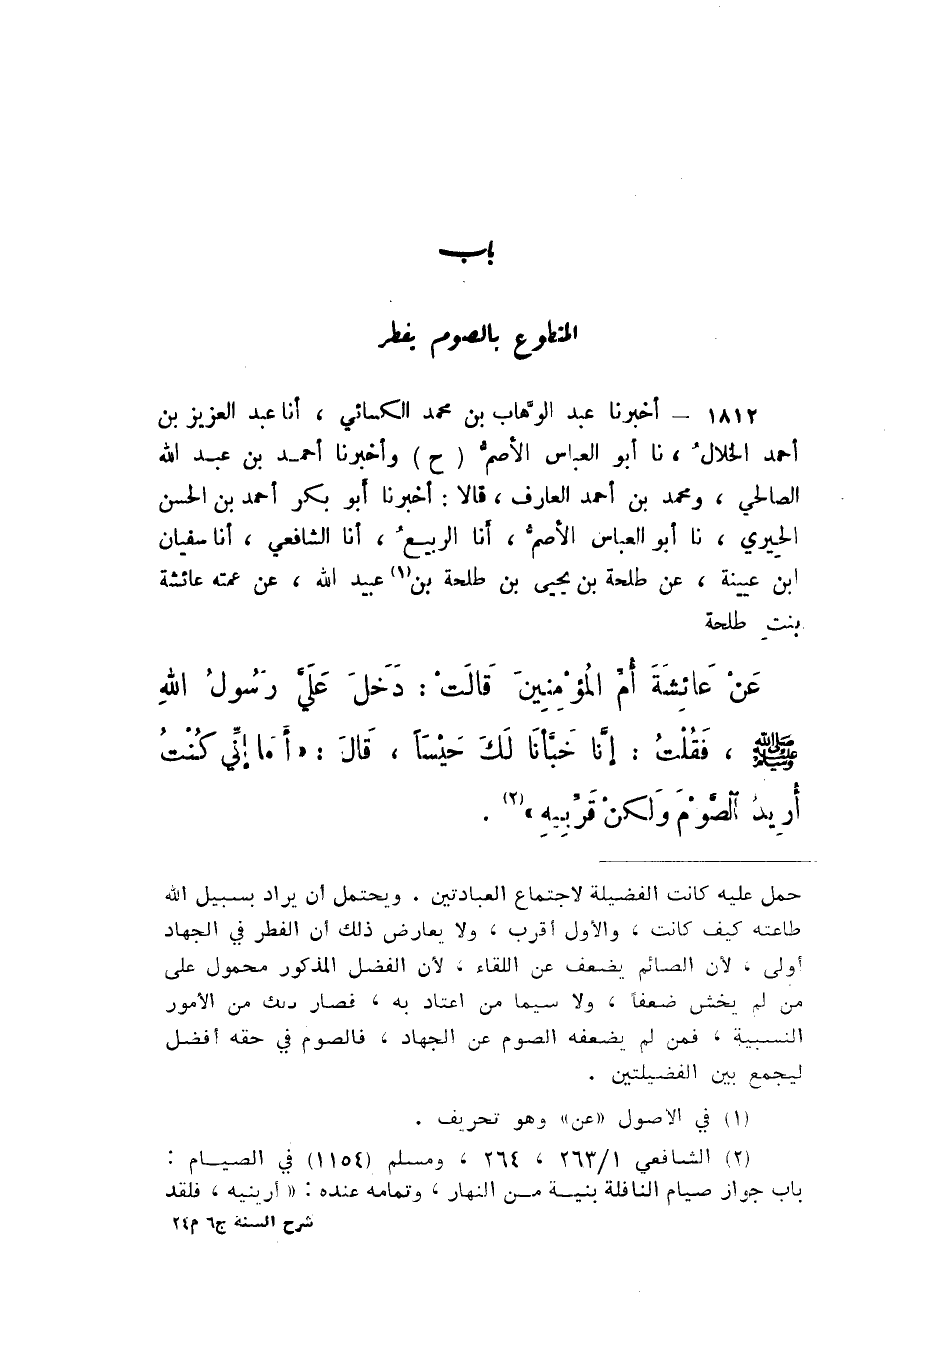 باب
المتطوع بالصوم يفطر
١٨١٢ – أخبرنا عبد الوهّاب بن محمد الكسائي ، أنا عبد العزيز بن
أحمد الخلالُ ، نا أبو العباس الأصمُّ ( ح ) وأخبرنا أحمـد بن عبـد الله
الصالحي ، ومحمد بن أحمد العارف ، قالا : أخبرنا أبو بكر أحمد بن الحسن
الحِيري ، نا أبو العباس الأصمُّ ، أنا الربيـعُ ، أنا الشافعي ، أنا سفيان
ابن عيينة ، عن طلحة بن يحيى بن طلحة بن(١) عبيد الله ، عن عمته عائشة
بنتِ طلحة
عَنْ عَائِشَةَ أُمِّ المُؤْمِنِينَ قَالَتْ : دَخَلَ عَلَيَّ رَسُولُ اللهِ
ﷺ ، فَقُلْتُ : إِنَّا خَبَأْنَا لَكَ حَيْسَاً ، قَالَ : «أَمَا إِنِّي كُنْتُ
أُرِيدُ الصَّوْمَ وَلكِنْ قَرِّبِيهِ »(٢) .
حمل عليه كانت الفضيلة لاجتماع العبادتين . ويحتمل أن يراد بسبيل الله
طاعته كيف كانت ، والأول أقرب ، ولا يعارض ذلك أن الفطر في الجهاد
أولى ، لأن الصائم يضعف عن اللقاء ، لأن الفضل المذكور محمول على
من لم يخش ضعفاً ، ولا سيما من اعتاد به ، فصار ذلك من الأمور
النسبية ، فمن لم يضعفه الصوم عن الجهاد ، فالصوم في حقه أفضل
ليجمع بين الفضيلتين .
(١) في الاصول «عن» وهو تحريف .
(٢) الشافعي ٢٦٣/١ ، ٢٦٤ ، ومسلم (١١٥٤) في الصيـام :
باب جواز صيام النافلة بنيـة مـن النهار ، وتمامه عنده : « أرينيه ، فلقد
شرح السنة ج٦ م٢٤